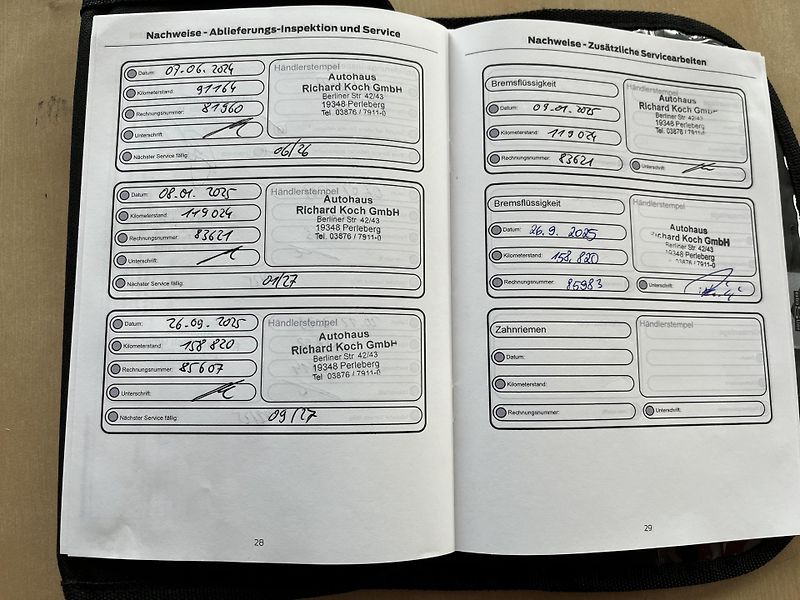 Nachweise - Ablieferungs-Inspektion und Service
Datum: 07.06.2024
Kilometerstand: 91164
Rechnungsnummer: 81960
Unterschrift:
Nächster Service fällig: 06/26
Händlerstempel
Autohaus
Richard Koch GmbH
Berliner Str. 42/43
19348 Perleberg
Tel. 03876 / 7911-0
Datum: 08.01.2025
Kilometerstand: 119024
Rechnungsnummer: 83621
Unterschrift:
Nächster Service fällig: 01/27
Händlerstempel
Autohaus
Richard Koch GmbH
Berliner Str. 42/43
19348 Perleberg
Tel. 03876 / 7911-0
Datum: 26.09.2025
Kilometerstand: 158820
Rechnungsnummer: 85607
Unterschrift:
Nächster Service fällig: 09/27
Händlerstempel
Autohaus
Richard Koch GmbH
Berliner Str. 42/43
19348 Perleberg
Tel. 03876 / 7911-0
28
Nachweise - Zusätzliche Servicearbeiten
Bremsflüssigkeit
Datum: 09.01.2025
Kilometerstand: 119024
Rechnungsnummer: 83621
Händlerstempel
Autohaus
Richard Koch GmbH
Berliner Str. 42/43
19348 Perleberg
Tel. 03876 / 7911-0
Unterschrift:
Bremsflüssigkeit
Datum: 26.9.2025
Kilometerstand: 158.820
Rechnungsnummer: 85983
Händlerstempel
Autohaus
Richard Koch GmbH
Berliner Str. 42/43
19348 Perleberg
03876 / 7911-0
Unterschrift:
Zahnriemen
Datum:
Kilometerstand:
Rechnungsnummer:
Händlerstempel
Unterschrift:
29